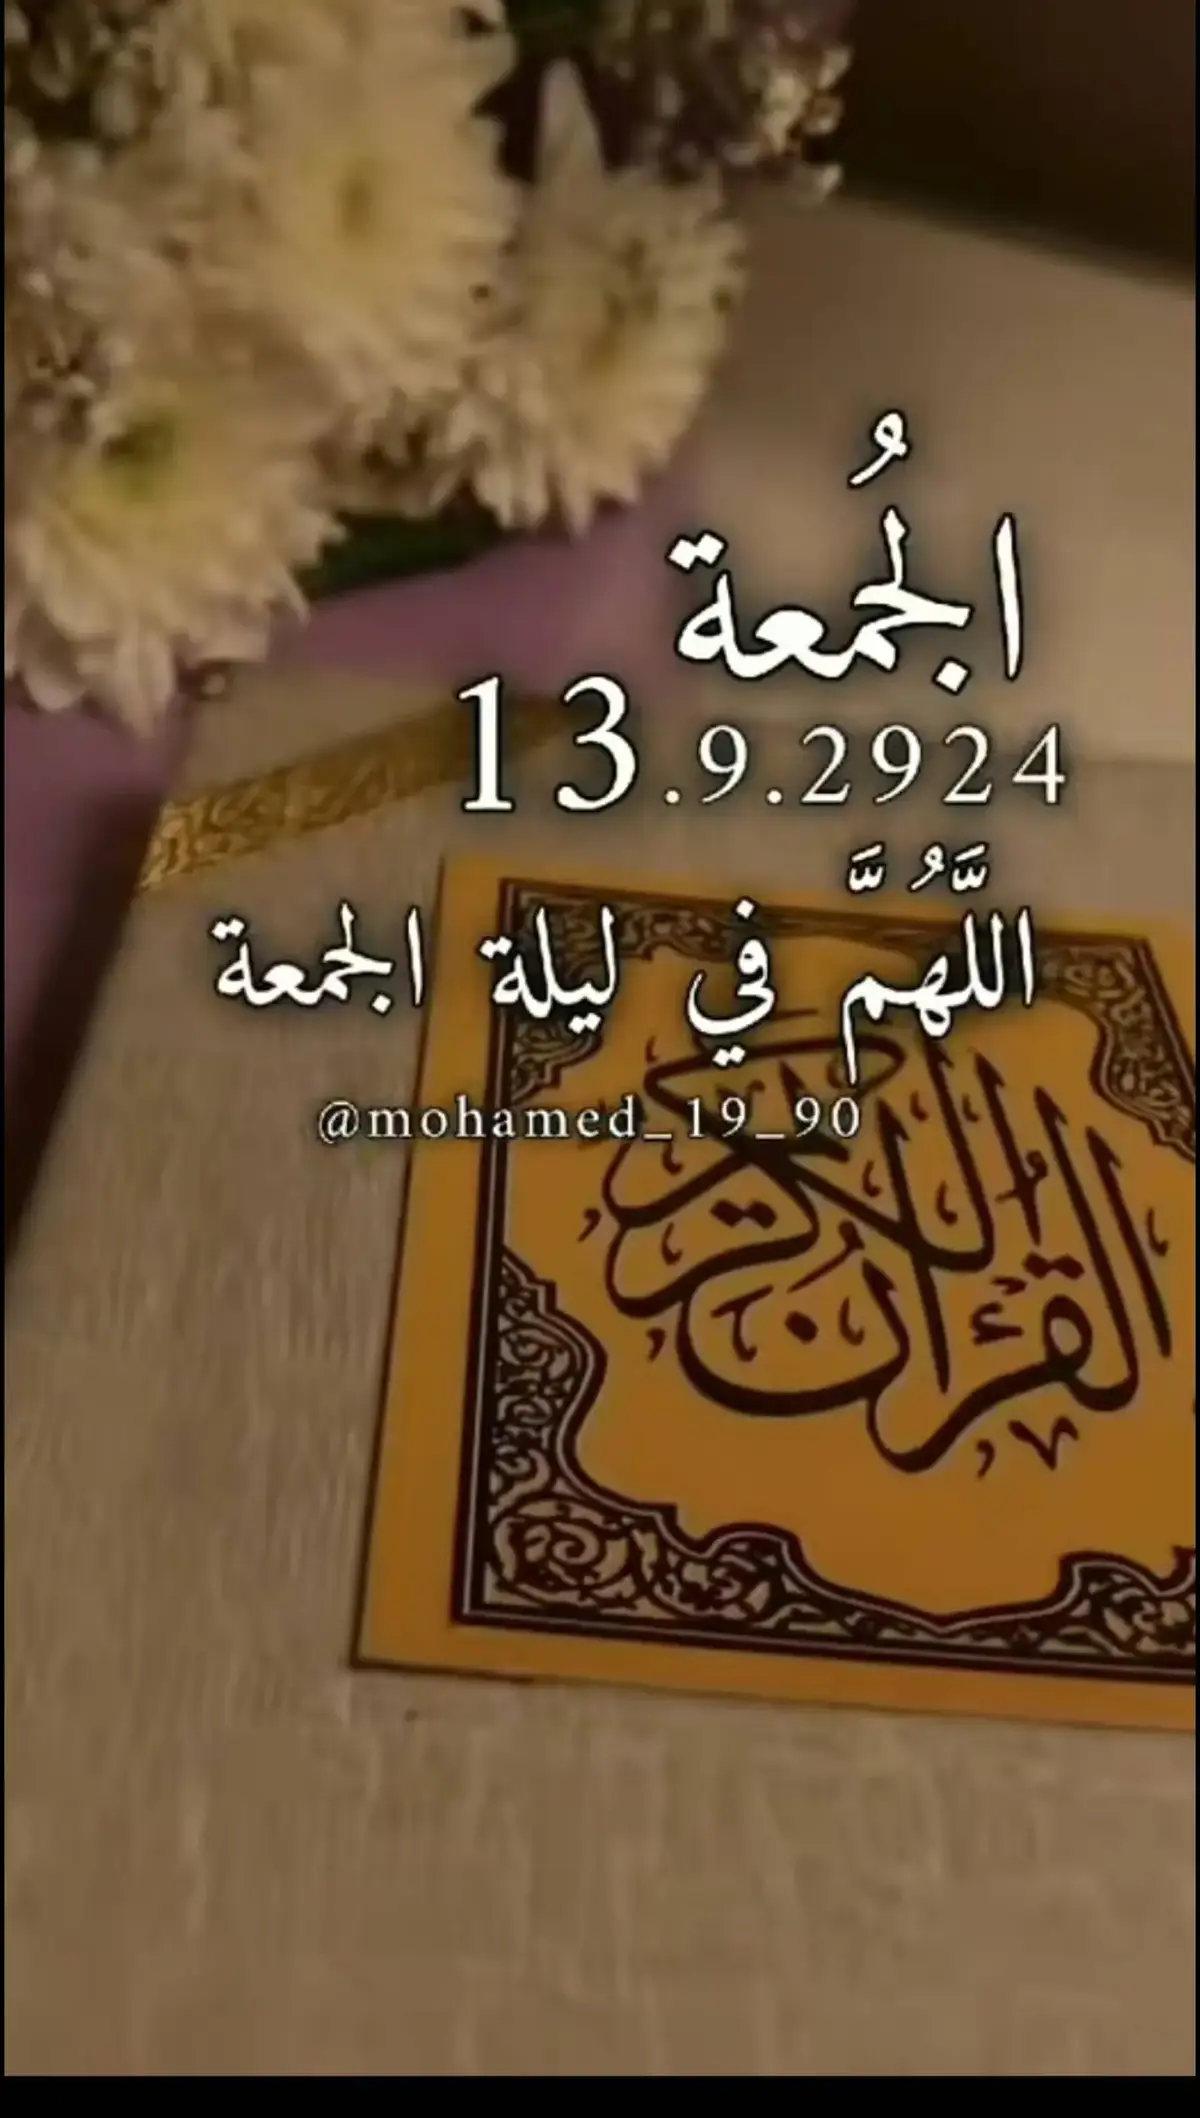 الجُمعة
13.9.2924
اللَّهُمَّ في ليلة الجمعة
@mohamed_19_90
القرآن الكريم